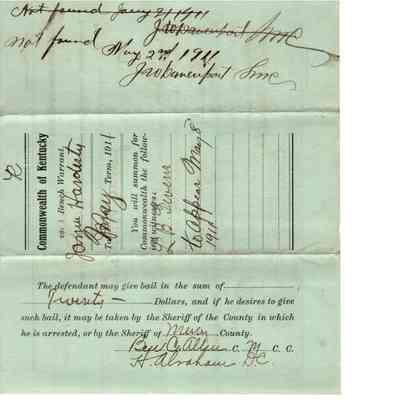 Not found Jany 21 1911
JWDavenport Smc
Not found May 2nd 1911
JWDavenport Smc
Commonwealth of Kentucky
vs: Bench Warrant.
Hardesty
May Term, 1911
You will summon for
Commonwealth the follow-
ing witness:
Stevens
to appear May 8
1911
The defendant may give bail in the sum of
Twenty — Dollars, and if he desires to give
such bail, it may be taken by the Sheriff of the County in which
he is arrested, or by the Sheriff of Mercer County.
Ben C. Allin C. M. C. C.
H. Abraham D.C.